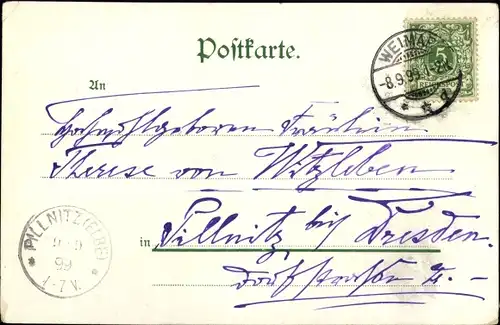 Postkarte.
WEIMAR
-8.9.99
5
An
Hochwohlgeboren Fräulein
Therese von Witzleben
PILLNITZ (ELBE)
9 9
99
1-7 V.
in Pillnitz bei Dresden
Dorfstrasse